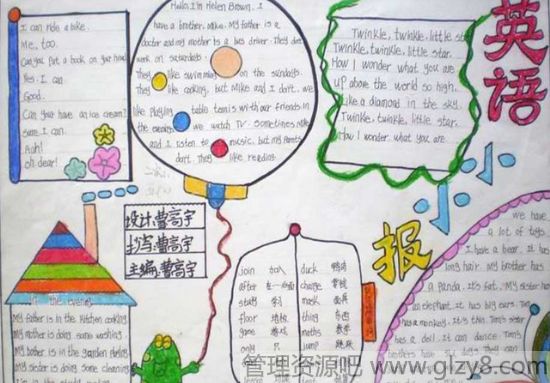 I can ride a bike.
Me, too.
Can you put a book on your head
Yes. I can.
Good.
Can you have an ice cream?
Sure. I can.
Aah!
oh dear!
Hello. I'm Helen Brown. I
have a brother. Mike. My father is a
doctor and my mother is a bus driver. They
work on saturdays.
They like swimming on the sundays.
They like cooking, but Mike and I don't. We
like playing table tenis with our friends in
the evening. we watch TV. Sometimes Mike
and I listen to music. but my parents
don't. They like reading.
Twinkle, twinkle, little star
Twinkle, twinkle, little star.
How I wonder what you are
up above the world so high.
Like a diamond in the sky.
Twinkle, twinkle, little star.
How I wonder what you are.
英语
小小
报
设计:曹高宇
抄写:曹高宇
主编:曹高宇
In the evening
My father is in the kitchen cooking
My mother is doing some washing
My father is in the garden
My sister is doing some cleaning
join 加入 duck 鸭
after 在…后面 change
stay mask 面具
floor 地板 thing 东西
game 游戏 maths 数学
only 只 jump 跳跃
we have
a lot of toys
I have a bear. It has
long hair. My brother has
a panda. it's fat. My sister has
an elephant. it has big ears. Tom
has a monkey. It's thin. Tom's sister
has a doll. It can dance. Tom's
管理资源吧 www.glzy8.com